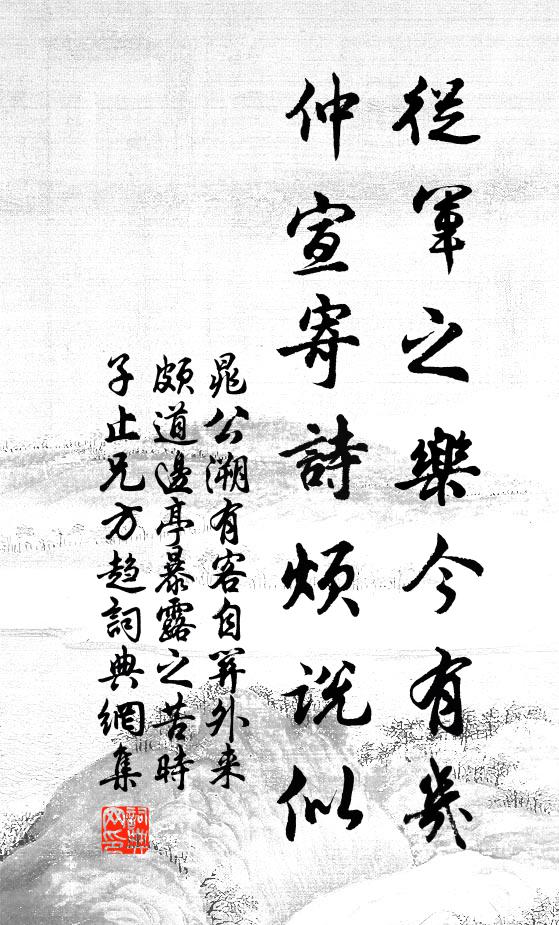 從軍之樂今有幾
仲宣寄詩煩說似
晁公溯有客自關外来
頗道邊亭暴露之苦時
子止兄方趋詞典網集
詞典
网